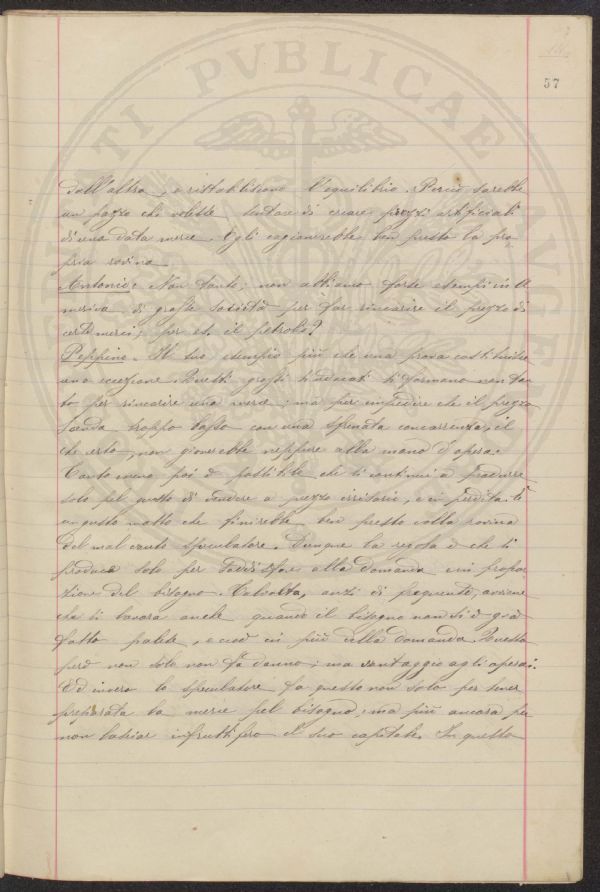 57
dall'altra, e ristabiliscono l'equilibrio. Perciò sarebbe
un pazzo chi volesse tentare di creare prezzi artificiali
di una data merce. Egli cagionerebbe ben presto la pro-
pria rovina.
Antonio: Non tanto; non abbiamo forse esempi in A
merica di grosse società per far rincarire il prezzo di
certe merci, per es. il petrolio?
Peppino. Il suo esempio più che una prova costituisce
una eccezione. Questi grossi sindacati si formano non tan
to per rincarire una merce; ma per impedire che il prezzo
scenda troppo basso con una sfrenata concorrenza, il
che certo, non gioverebbe neppure alla mano d'opera.
Tanto meno poi è possibile che si continui a produrre
solo pel gusto di vendere a prezzo irrisorio, e in perdita. È
un gusto matto che finirebbe ben presto colla rovina
del mal cauto speculatore. Dunque la regola è che si
produce solo per soddisfare alla domanda e in propor
zione del bisogno. Talvolta, anzi di frequente, avviene
che si lavora anche quando il bisogno non si è già
fatto palese, e cioè in più della domanda. Questo
però non solo non fa danno; ma vantaggio agli operai.
Ed invero lo speculatore fa questo non solo per tener
preparata la merce pel bisogno; ma più ancora per
non lasciar infruttifero il suo capitale. In questo
GENTI PVBLICAE AVGE